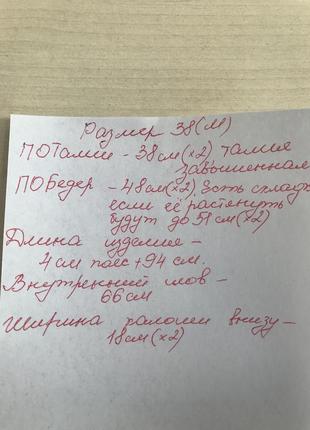 Размер 38(М)
ПОТалии - 38см(х2), талия
завышенная
ПОБедер - 48см(х2) Есть складк
если её растянуть
будут до 51см(х2)
Длина изделия -
4см пояс + 94 см.
Внутренний шов -
66см
Ширина калоши внизу -
18см(х2)